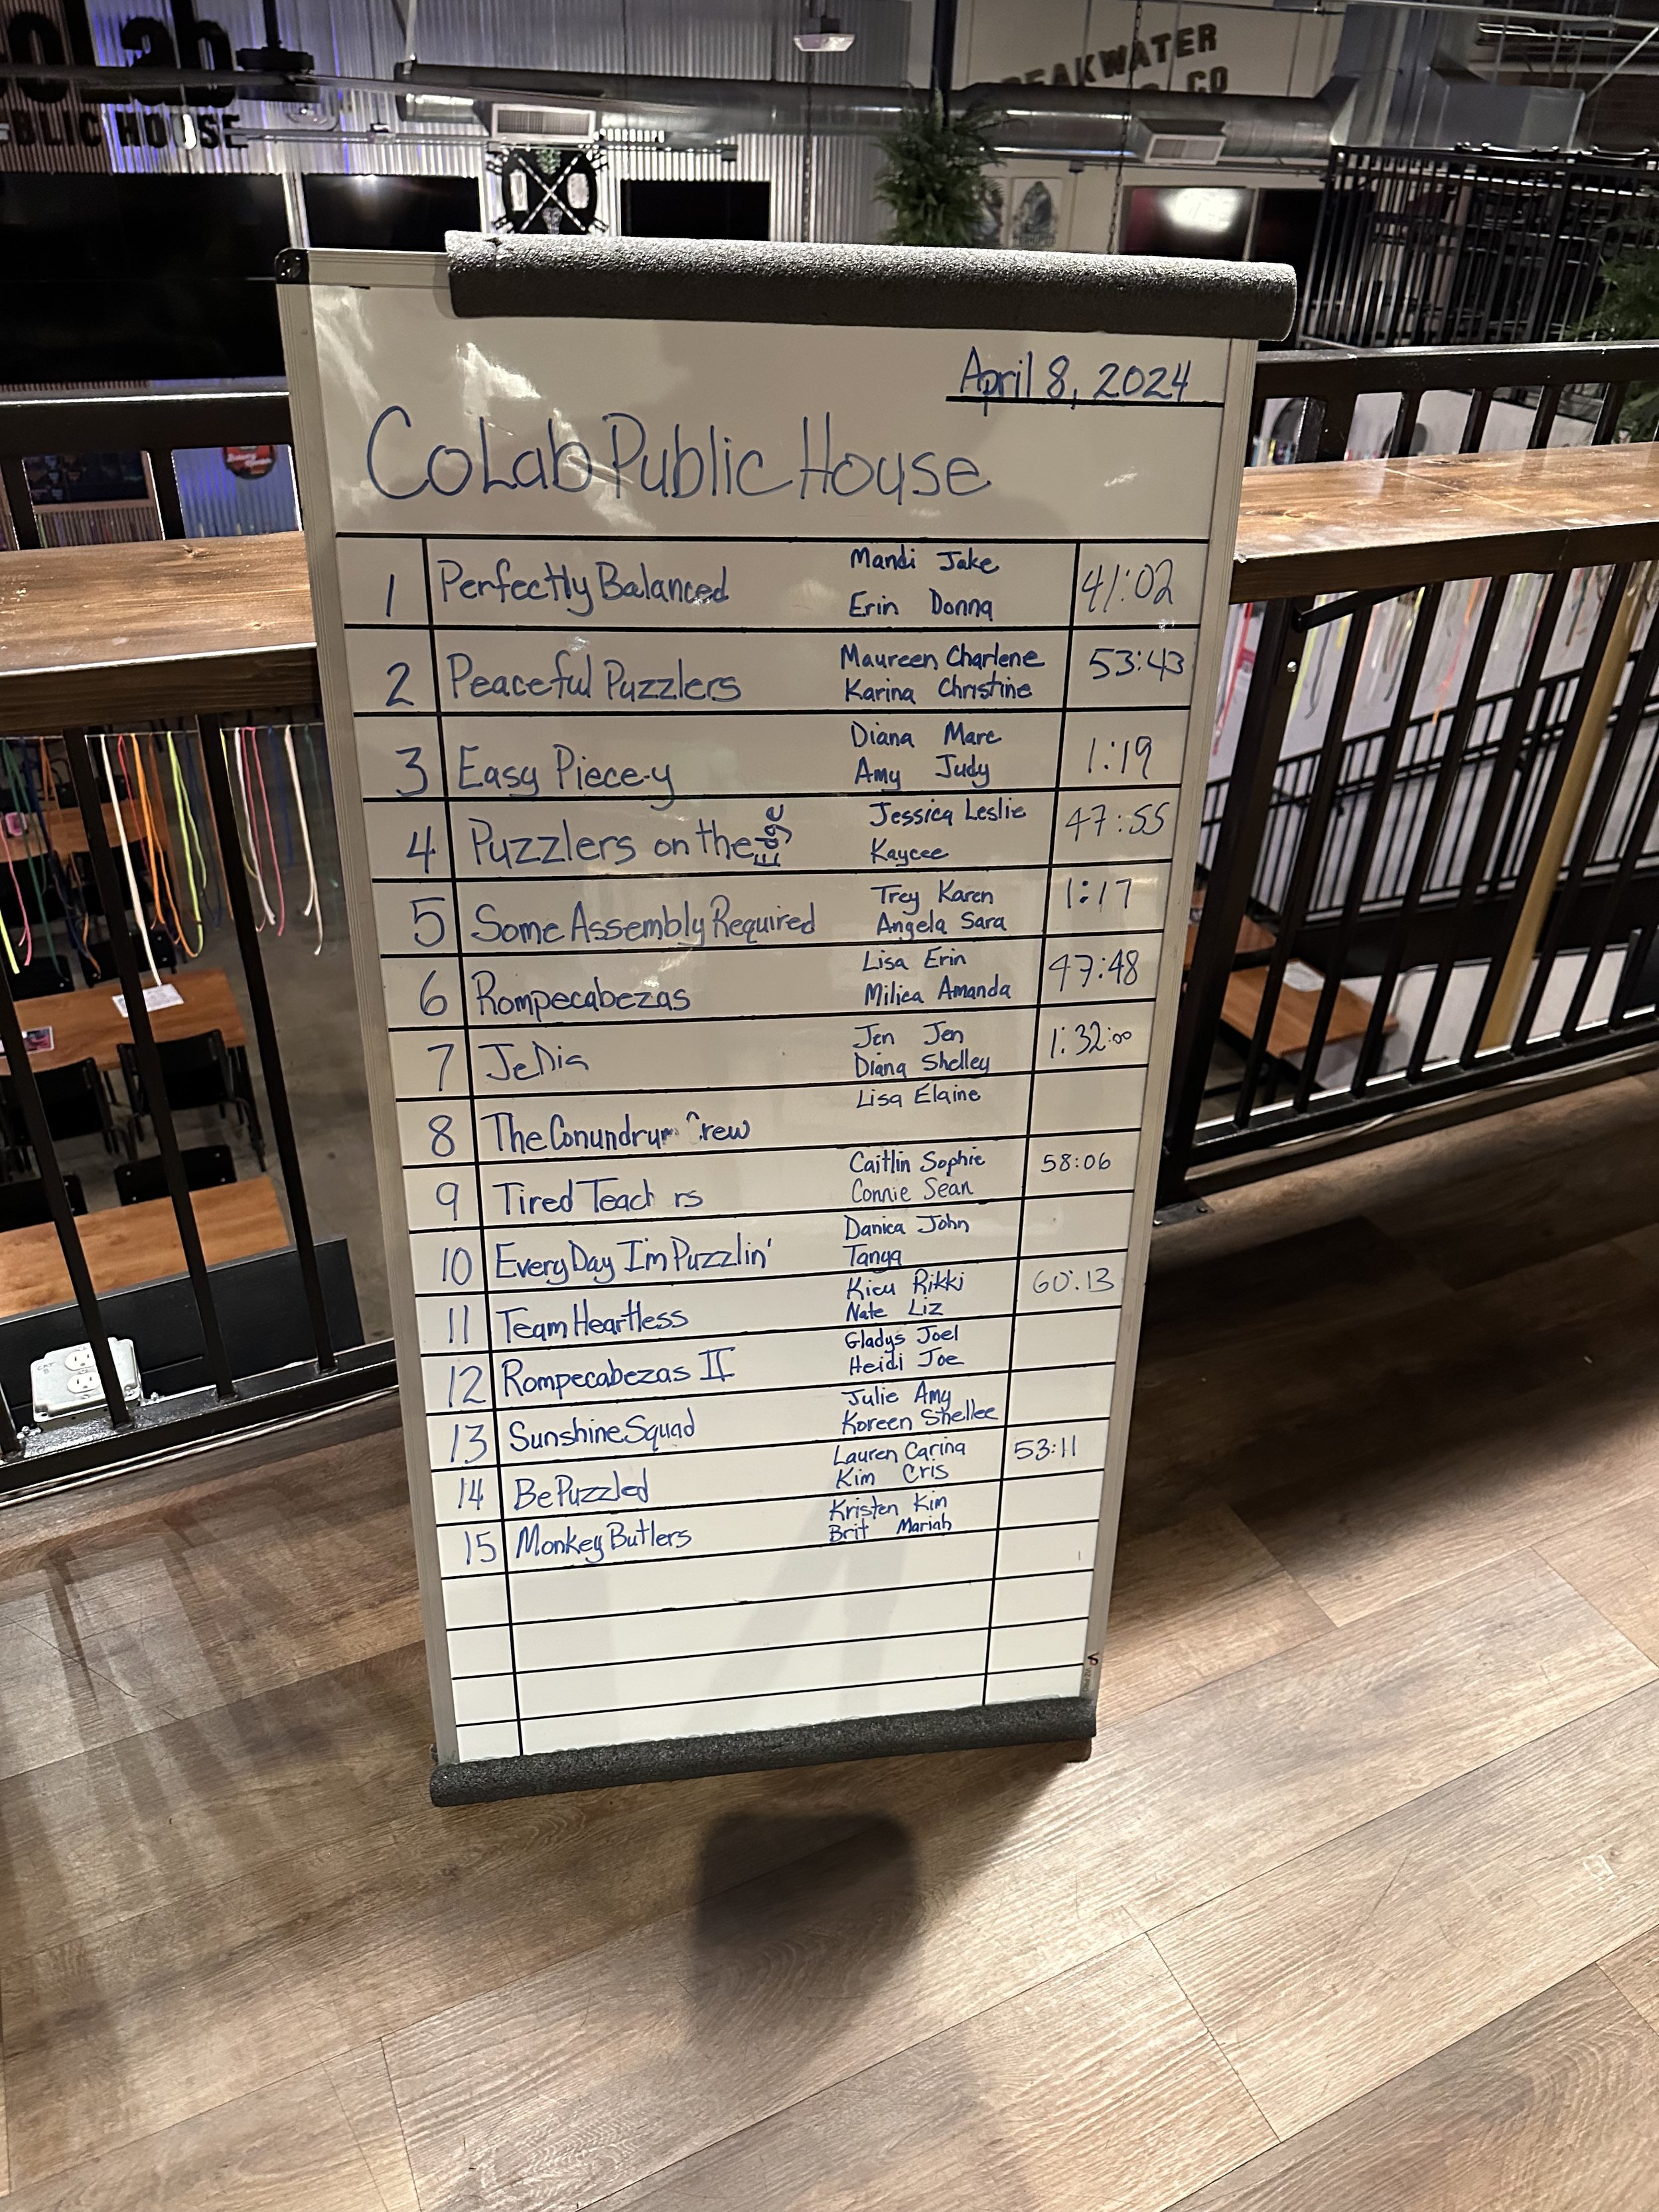 CoLab
PUBLIC HOUSE
BREAKWATER
CO
April 8, 2024
CoLab Public House
1 Perfectly Balanced Mandi Jake Erin Donna 41:02
2 Peaceful Puzzlers Maureen Charlene Karina Christine 53:43
3 Easy Piece-y Diana Marc Amy Judy 1:19
4 Puzzlers on the Edge Jessica Leslie Kaycee 47:55
5 Some Assembly Required Trey Karen Angela Sara 1:17
6 Rompecabezas Lisa Erin Milica Amanda 47:48
7 JeDis Jen Jen Diana Shelley 1:32:00
8 The Conundrum Crew Lisa Elaine
9 Tired Teach rs Caitlin Sophie Connie Sean 58:06
10 Every Day I'm Puzzlin' Danica John Tanya
11 Team Heartless Kieu Rikki Nate Liz 60:13
12 Rompecabezas II Gladys Joel Heidi Joe
13 Sunshine Squad Julie Amy Koreen Shellee
14 Be Puzzled Lauren Carina Kim Cris 53:11
15 Monkey Butlers Kristen Kim Brit Mariah